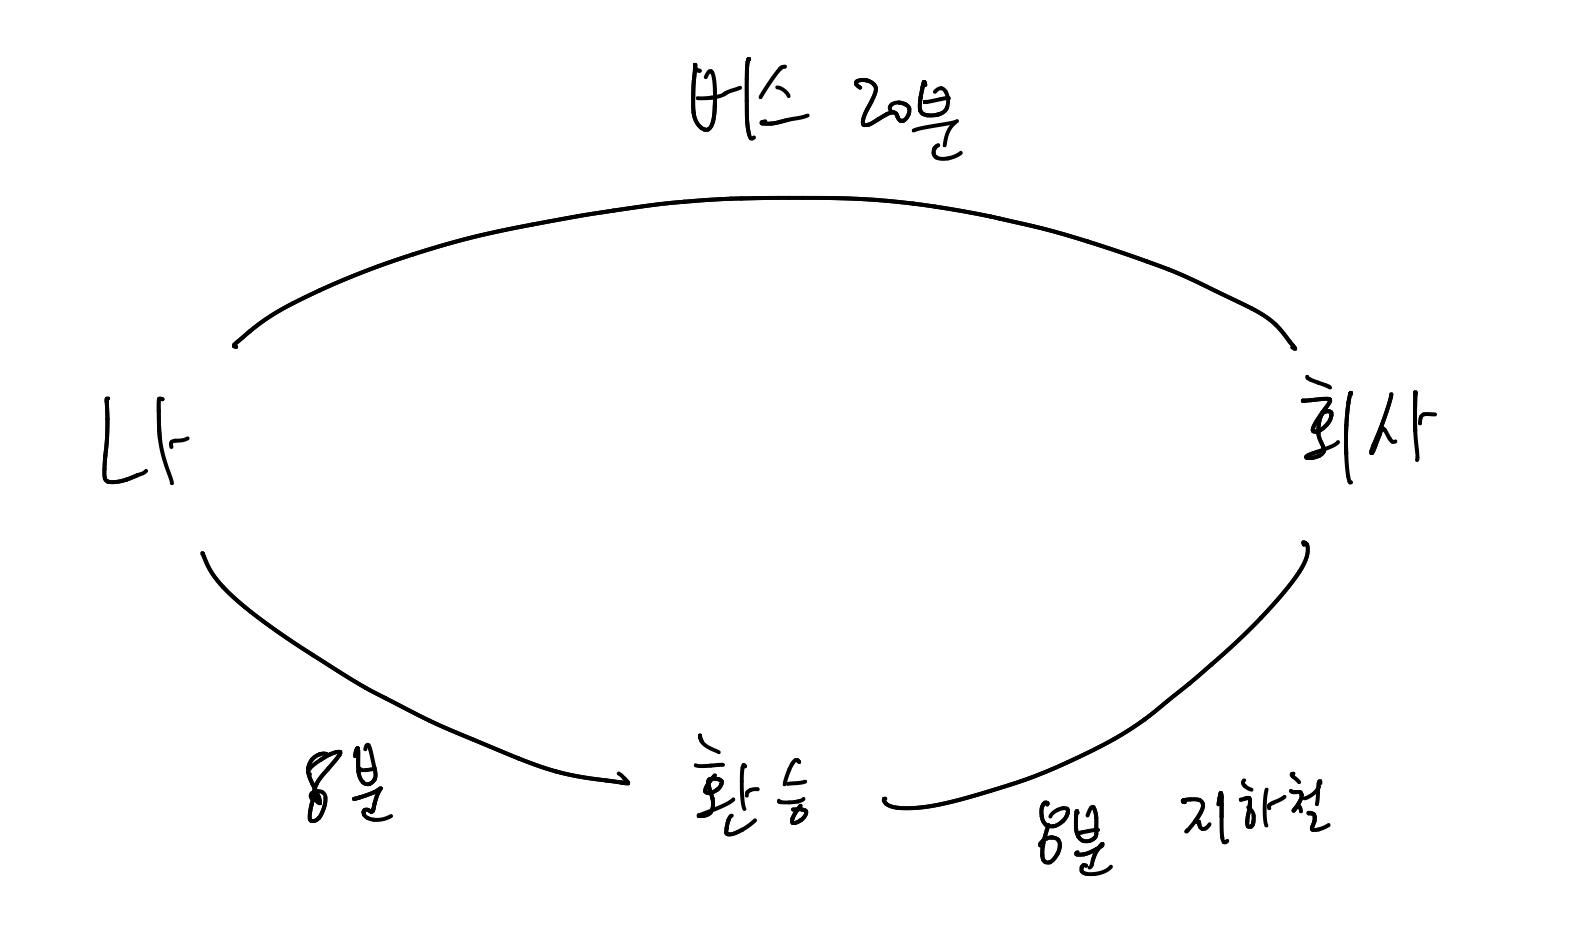 버스 20분
나
회사
8분
환승
8분 지하철